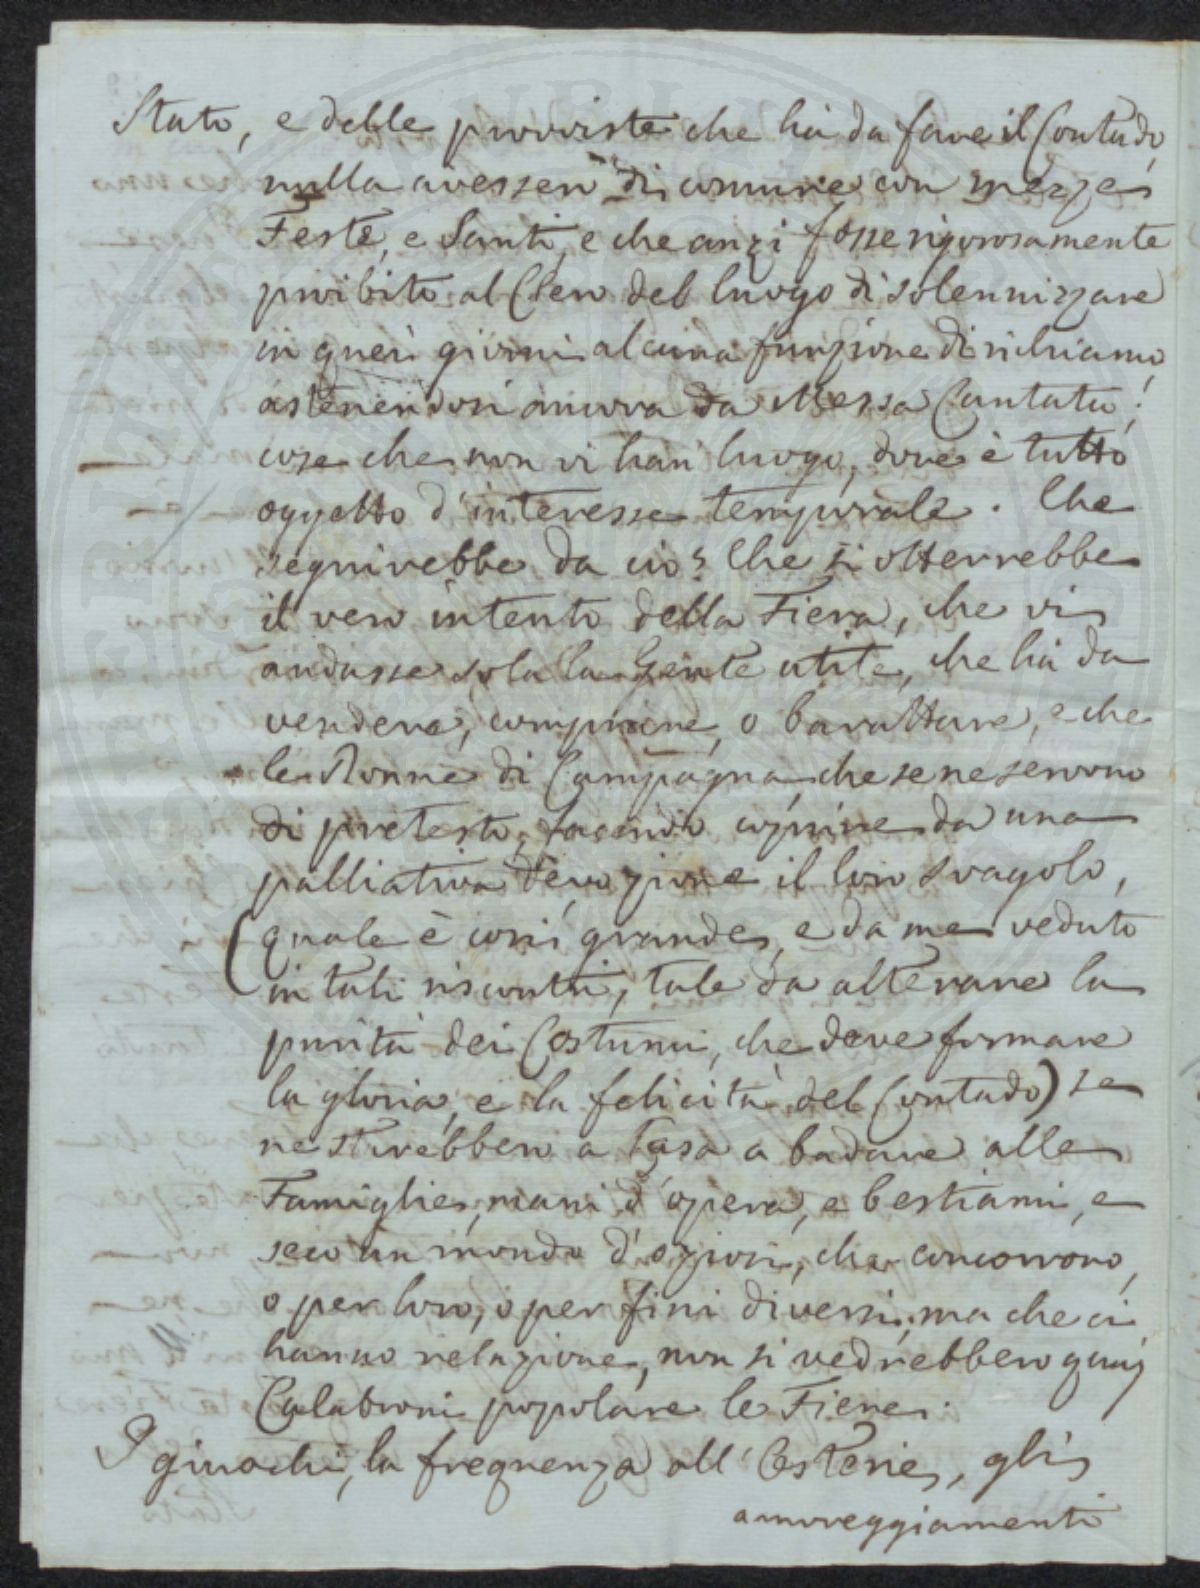 Stato, e delle provviste che ha da fare il Contado,
nulla avessero di comune con mezze
Feste, e Santi, e che anzi fosse rigorosamente
proibito al Clero del luogo di solennizzare
in quei giorni alcuna funzione di richiamo,
astenendosi ancora da Messa Cantata;
cose che non vi han luogo, dove è tutto
oggetto d'interesse temporale. Che
seguirebbe da ciò? Che si otterrebbe
il vero intento della Fiera, che vi
andasse sola la Gente utile, che ha da
vendere, comprare, o barattare, e che
le Donne di Campagna, che se ne servono
di pretesto, facendo coprire da una
palliativa devozione il loro svagolo,
(quale è così grande, e da me veduto
in tali riscontri, tale da alterare la
purità dei Costumi, che deve formare
la gloria, e la felicità del Contado) se
ne stirebbero a Casa a badare alle
Famiglie, mani d'opera, e bestiami, e
seco un mondo d'oziosi, che concorrono,
o per loro, o per fini diversi, ma che ci
hanno relazione, non si vedrebbero quai
Calabroni popolare le Fiere.
I giuochi, la frequenza all'Osterie, gli
amoreggiamenti